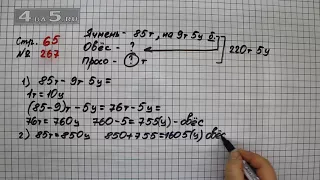 4 на 5.ru
Стр. 65
№ 267
Ячмень - 85т, на 9т 5ц б.
Овёс - ?
Просо - ? т
220т 5ц
1) 85т - 9т 5ц =
1т = 10ц
(85-9)т - 5ц = 76т - 5ц =
76т = 760ц 760 - 5 = 755(ц) - овёс
2) 85т = 850ц 850 + 755 = 1605(ц) овёс